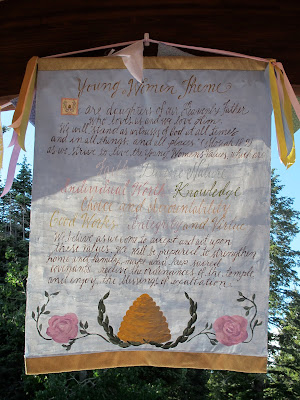 Young Women Theme
We are daughters of our Heavenly Father
who loves us and we love Him.
We will stand as witnesses of God at all times
and in all things, and all places
as we strive to live the Young Women values, which are
Faith Divine Nature
Individual Worth Knowledge
Choice and Accountability
Good Works Integrity and Virtue
We believe as we come to accept and act upon
these values, we will be prepared to strengthen
home and family, make and keep sacred
covenants, receive the ordinances of the temple
and enjoy the blessings of exaltation.